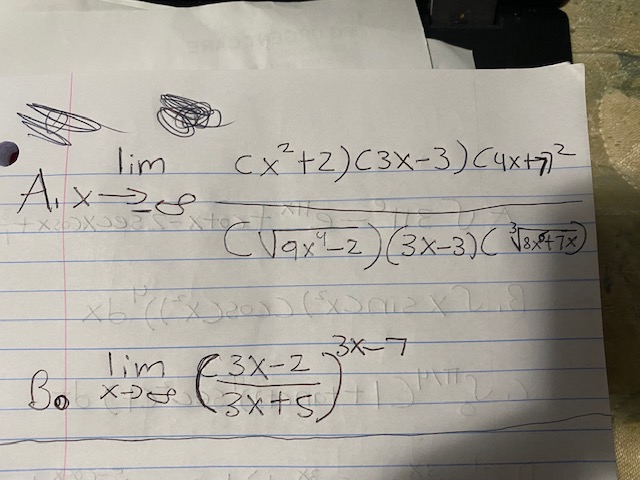 A. lim x→-∞ (x²+2)(3x-3)(4x+7)² / (√(9x⁴-2))(3x-3)(∛(8x⁶+7x))
B. lim x→∞ ((3x-2)/(3x+5))^(3x-7)